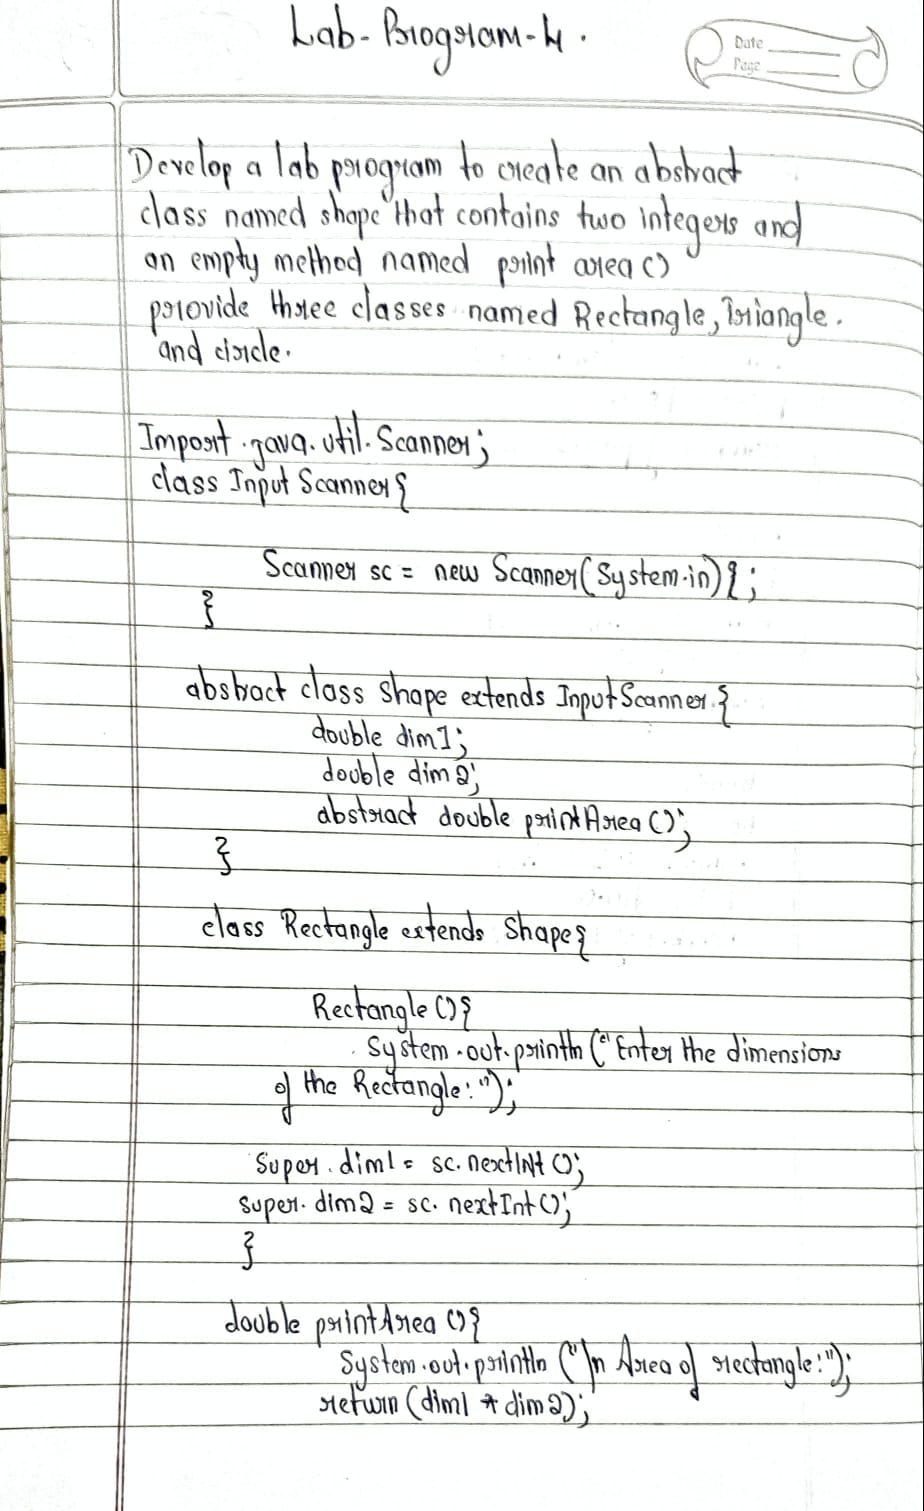 Lab-Program-4.
Date
Page
Develop a lab program to create an abstract
class named shape that contains two integers and
an empty method named print area ()
provide three classes named Rectangle, Triangle.
and circle.
Import.java.util.Scanner;
class Input Scanner{
Scanner sc = new Scanner(System.in)};
}
abstract class Shape extends InputScanner{
double dim1;
double dim2;
abstract double printArea ();
}
class Rectangle extends Shape{
Rectangle (){
System.out.println ("Enter the dimensions
of the Rectangle:");
Super.dim1= sc.nextInt ();
super.dim2 = sc.nextInt();
}
double printArea (){
System.out.println ("\n Area of rectangle:");
return (dim1 * dim2);